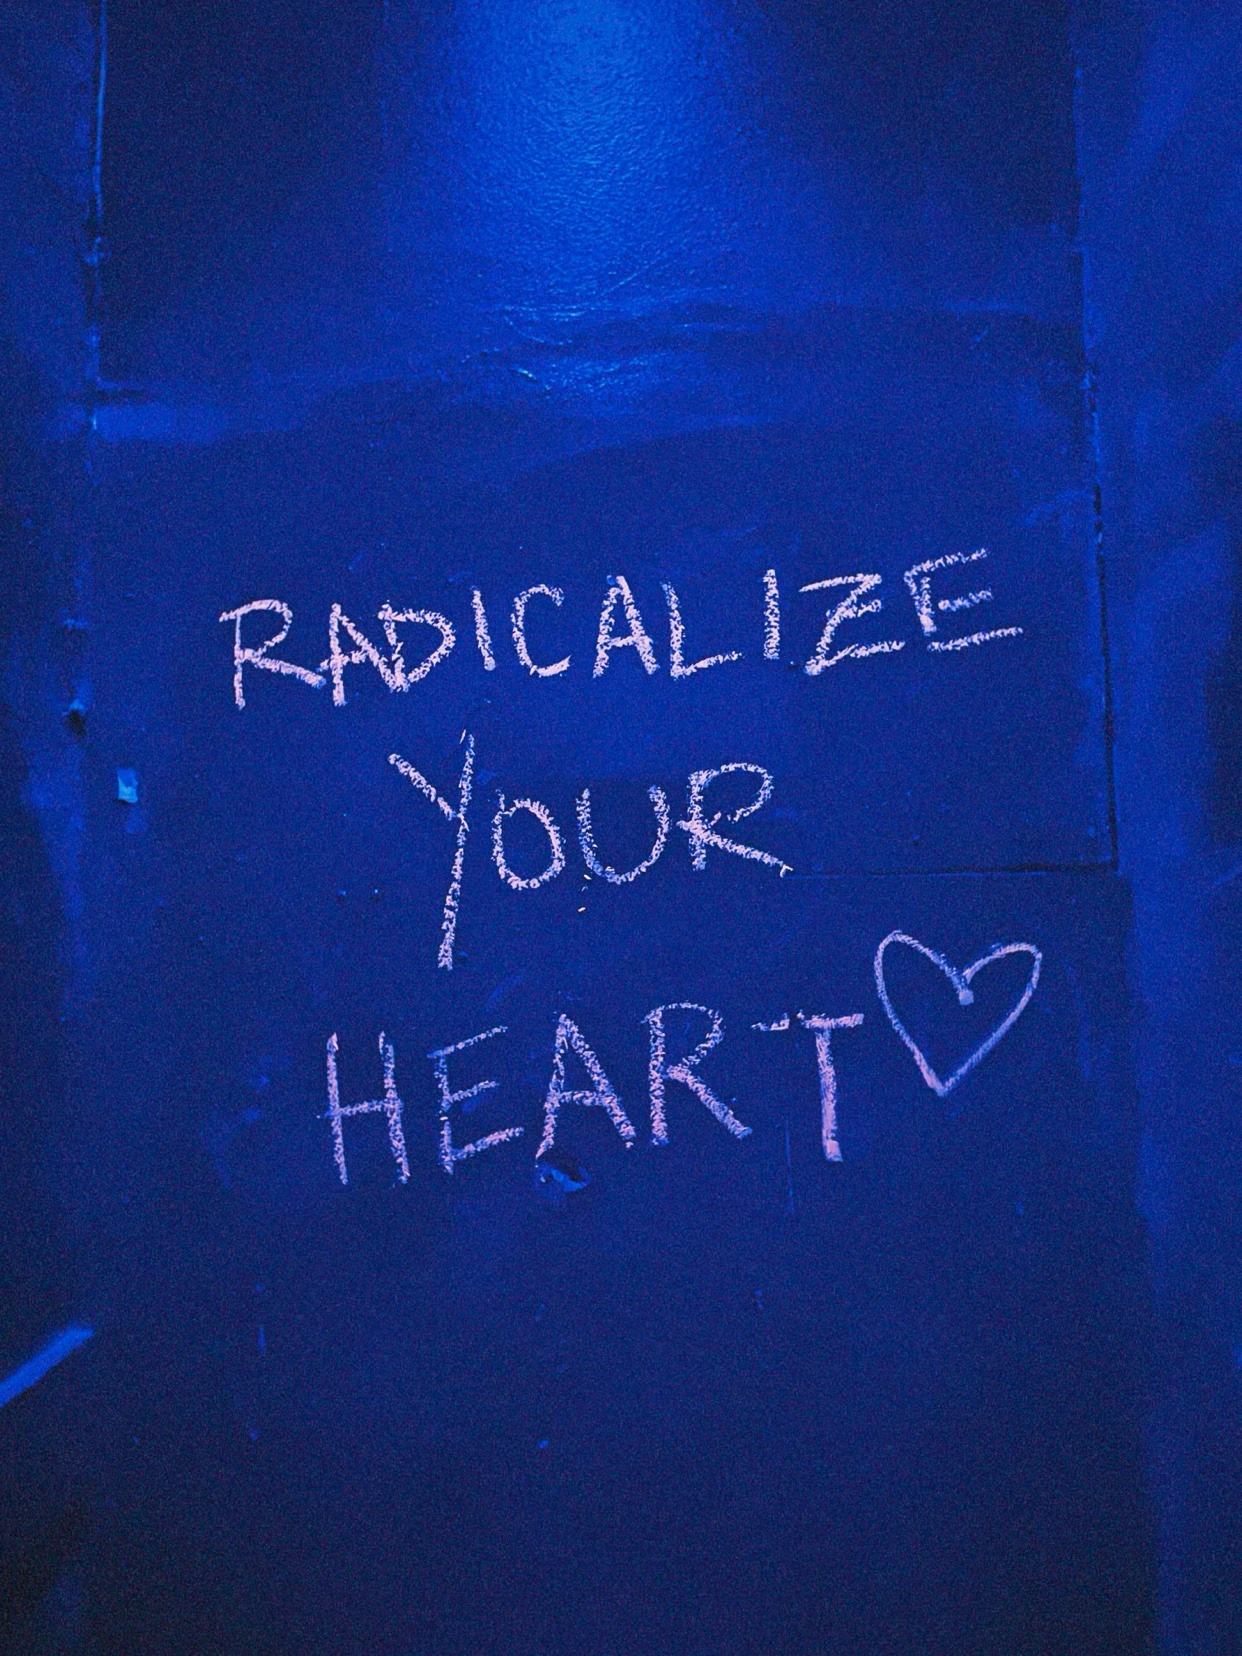 RADICALIZE
YOUR
HEART